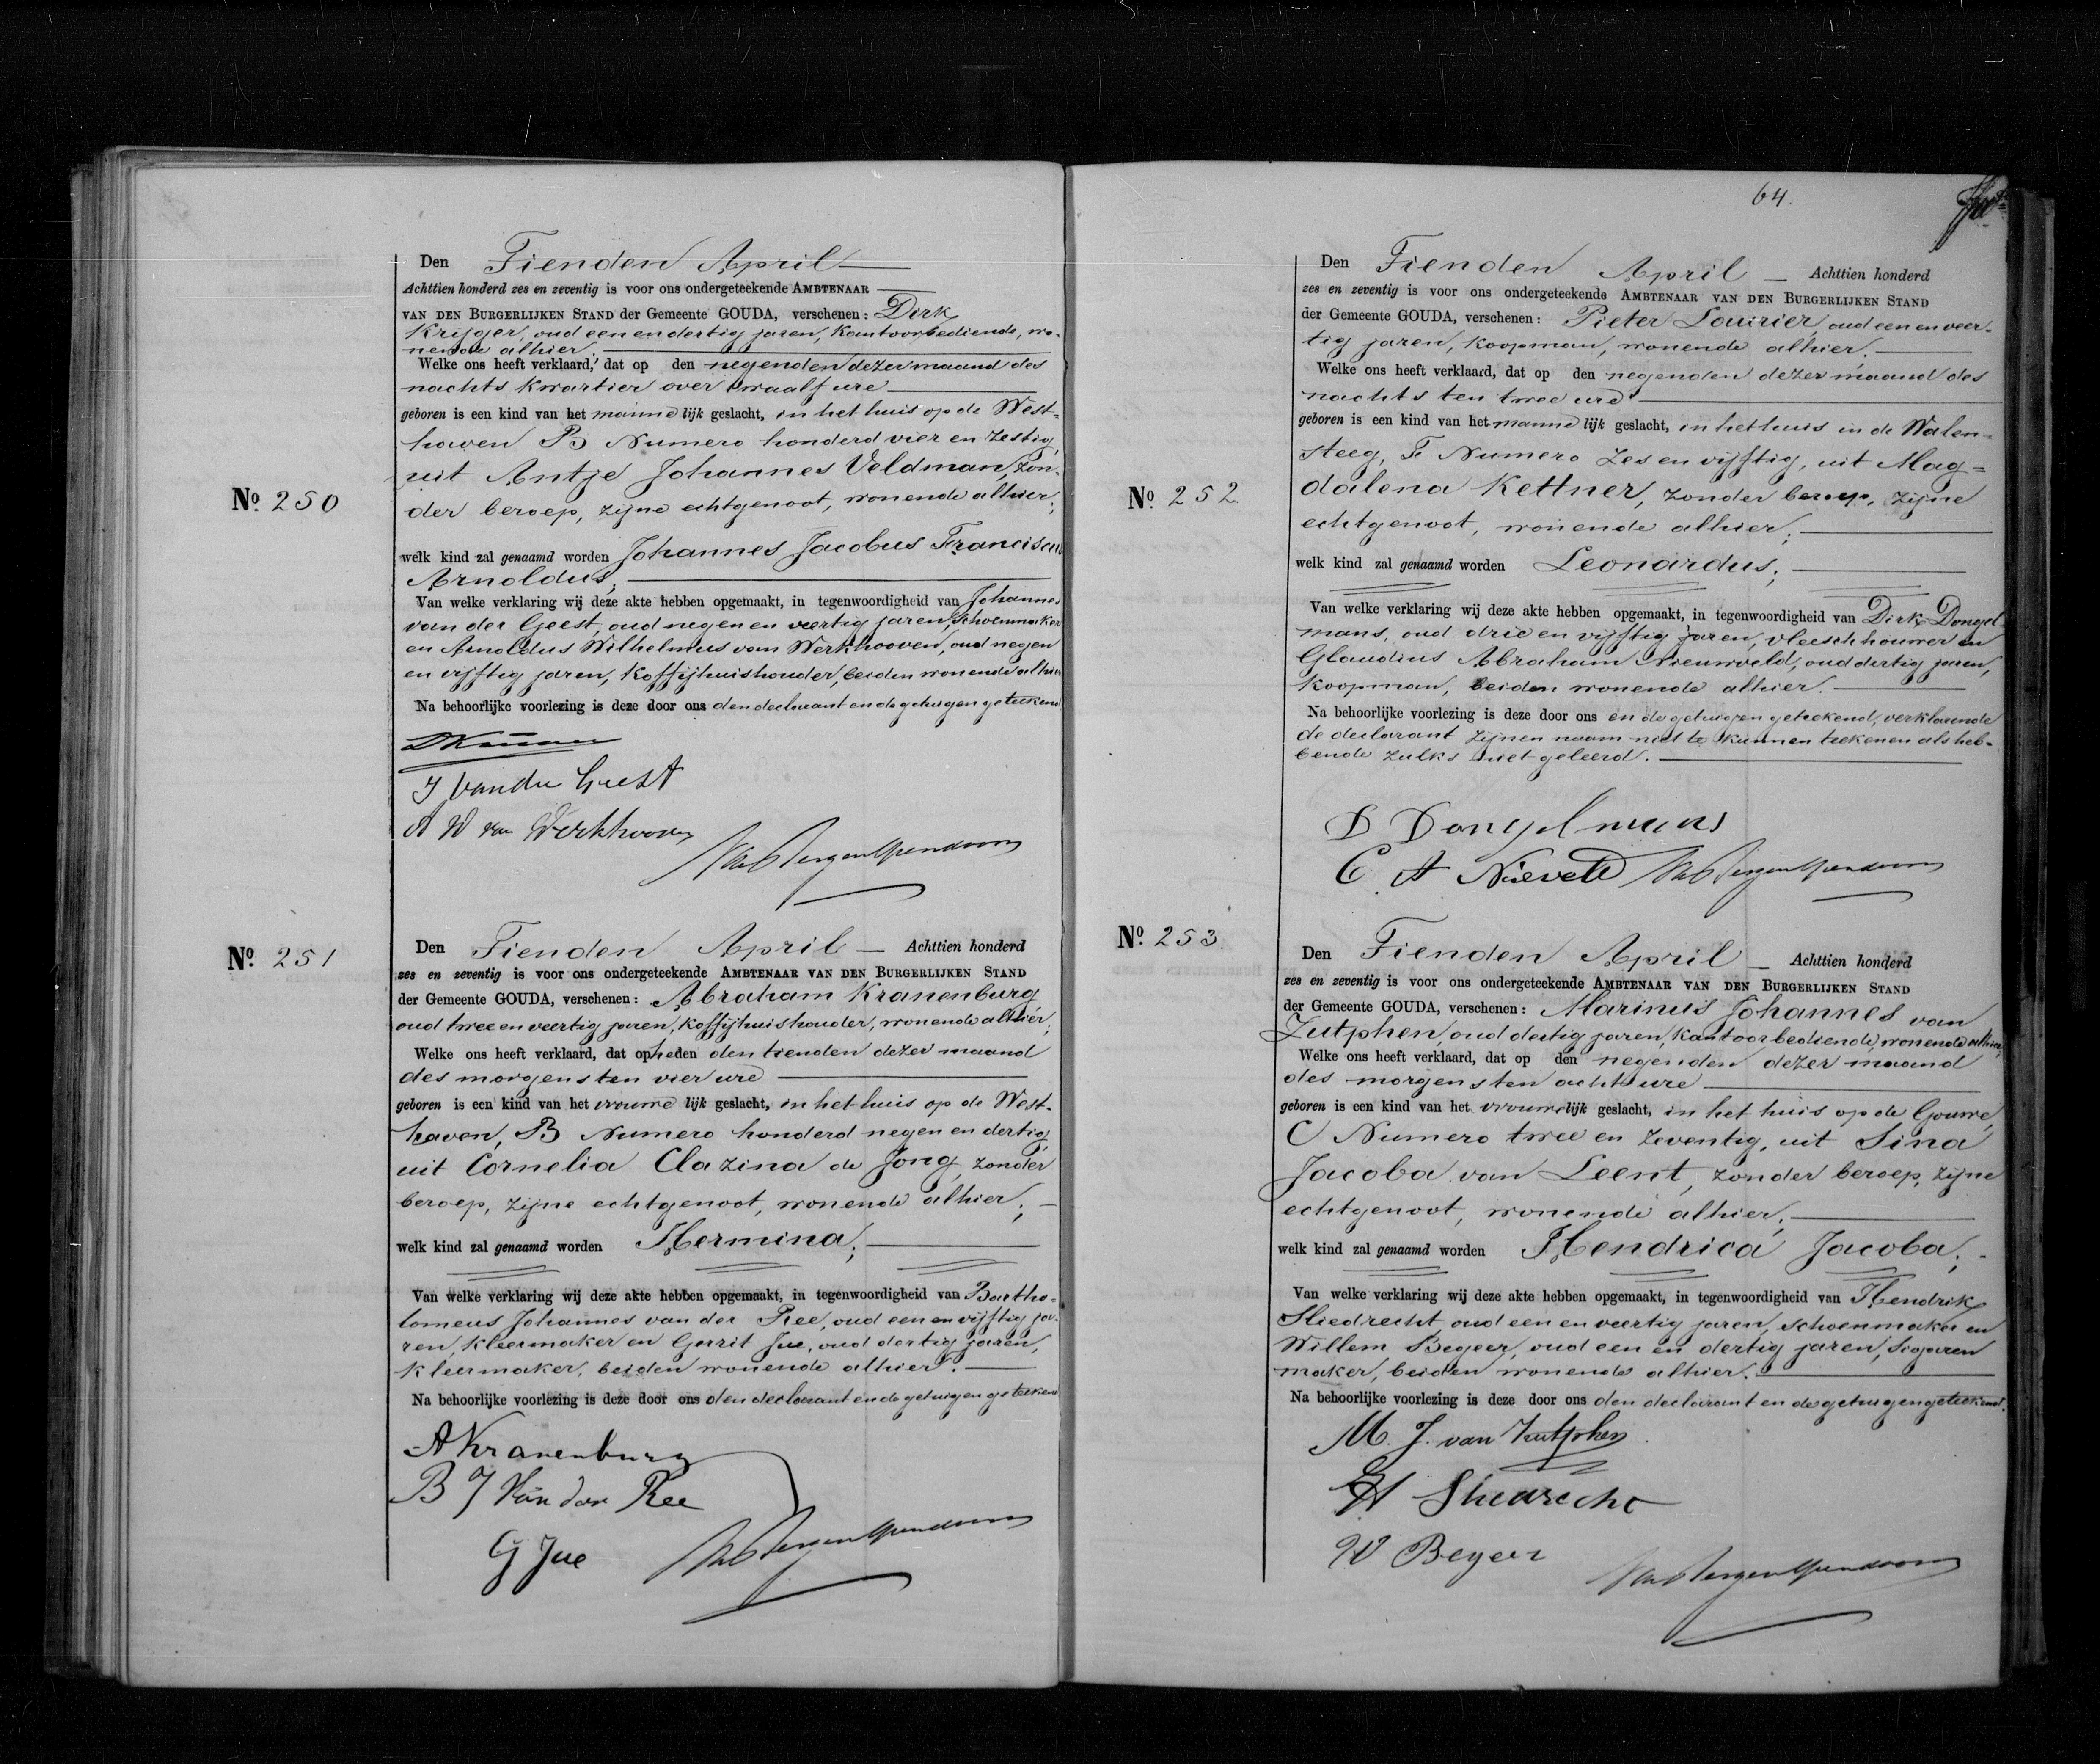 Nº 250
Den Tienden April
Achttien honderd zes en zeventig is voor ons ondergeteekende AMBTENAAR
VAN DEN BURGERLIJKEN STAND der Gemeente GOUDA, verschenen: Dirk
Krijger, oud een en dertig jaren, Kantoorbediende, wo-
nende alhier;
Welke ons heeft verklaard, dat op den negenden dezer maand des
nachts kwartier over twaalf ure
geboren is een kind van het mannelijk geslacht, in het huis op de West-
haven B Numero honderd vier en zestig,
uit Antje Johannes Veldman, zon-
der beroep, zijne echtgenoot, wonende alhier;
welk kind zal genaamd worden Johannes Jacobus Franciscus
Arnoldus;
Van welke verklaring wij deze akte hebben opgemaakt, in tegenwoordigheid van Johannes
van der Geest, oud negen en veertig jaren, Schoenmaker
en Arnoldus Wilhelmus van Werkhooven, oud negen
en vijftig jaren, Koffijhuishouder, beiden wonende alhier
Na behoorlijke voorlezing is deze door ons den declarant en de getuigen geteekend
J van der Geest
A W van Werkhooven
Nº 251
Den Tienden April Achttien honderd
zes en zeventig is voor ons ondergeteekende AMBTENAAR VAN DEN BURGERLIJKEN STAND
der Gemeente GOUDA, verschenen: Abraham Kranenburg,
oud twee en veertig jaren, Koffijhuishouder, wonende alhier;
Welke ons heeft verklaard, dat op heden den tienden dezer maand
des morgens ten vier ure
geboren is een kind van het vrouwelijk geslacht, in het huis op de West-
haven, B Numero honderd negen en dertig,
uit Cornelia Clazina de Jong, zonder
beroep, zijne echtgenoot, wonende alhier;
welk kind zal genaamd worden Hermina;
Van welke verklaring wij deze akte hebben opgemaakt, in tegenwoordigheid van Bartho-
lomeus Johannes van der Ree, oud een en vijftig ja-
ren, Kleermaker en Gerrit Jue, oud dertig jaren,
Kleermaker, beiden wonende alhier.
Na behoorlijke voorlezing is deze door ons den declarant en de getuigen geteekend
A Kranenburg
B J Van der Ree
G Jue
64.
Nº 252.
Den Tienden April Achttien honderd
zes en zeventig is voor ons ondergeteekende AMBTENAAR VAN DEN BURGERLIJKEN STAND
der Gemeente GOUDA, verschenen: Pieter Lourier, oud een en veer-
tig jaren, koopman, wonende alhier;
Welke ons heeft verklaard, dat op den negenden dezer maand des
nachts ten twee ure
geboren is een kind van het mannelijk geslacht, in het huis in de Walen-
steeg, F Numero zes en vijftig, uit Mag-
dalena Kettner, zonder beroep, zijne
echtgenoot, wonende alhier;
welk kind zal genaamd worden Leonardus;
Van welke verklaring wij deze akte hebben opgemaakt, in tegenwoordigheid van Dirk Dongel-
mans, oud drie en vijftig jaren, vleeschhouwer en
Glaudius Abraham Nieuwveld, oud dertig jaren,
Koopman, beiden wonende alhier.
Na behoorlijke voorlezing is deze door ons en de getuigen geteekend, verklarende
de declarant zijnen naam niet te kunnen teekenen als heb-
bende zulks niet geleerd.
D Dongelmans
C A Nieveld
Nº 253.
Den Tienden April Achttien honderd
zes en zeventig is voor ons ondergeteekende AMBTENAAR VAN DEN BURGERLIJKEN STAND
der Gemeente GOUDA, verschenen: Marinus Johannes van
Zutphen, oud dertig jaren, Kantoorbediende, wonende alhier;
Welke ons heeft verklaard, dat op den negenden dezer maand
des morgens ten acht ure
geboren is een kind van het vrouwelijk geslacht, in het huis op de Gouwe,
C Numero twee en zeventig, uit Sina
Jacoba van Leent, zonder beroep, zijne
echtgenoot, wonende alhier;
welk kind zal genaamd worden Hendrica Jacoba;
Van welke verklaring wij deze akte hebben opgemaakt, in tegenwoordigheid van Hendrik
Sliedrecht oud een en veertig jaren, schoenmaker en
Willem Begeer, oud een en dertig jaren, Sigaren
maker, beiden wonende alhier.
Na behoorlijke voorlezing is deze door ons den declarant en de getuigen geteekend.
M. J. van Zutphen
H Sliedrecht
W Begeer